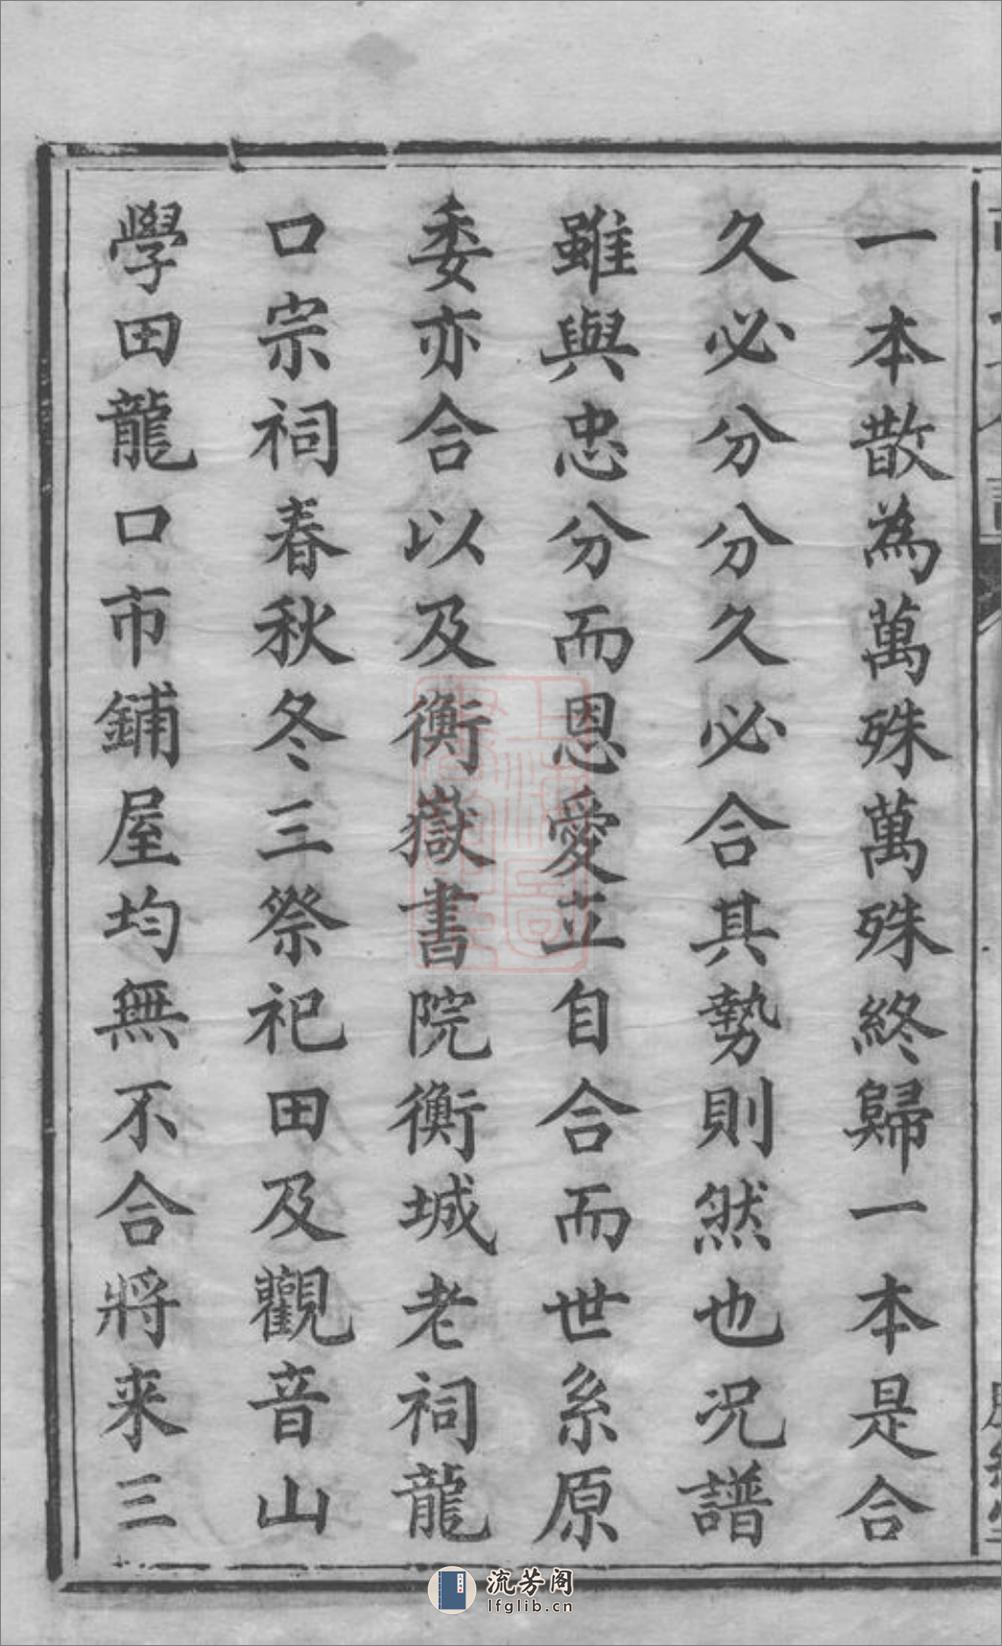 一本散為萬殊萬殊終歸一本是合
久必分分久必合其勢則然也况譜
雖與忠分而恩愛並自合而世系原
委亦合以及衡嶽書院衡城老祠龍
口宗祠春秋冬三祭祀田及觀音山
學田龍口市鋪屋均無不合將来三
流芳阁
lfglib.cn